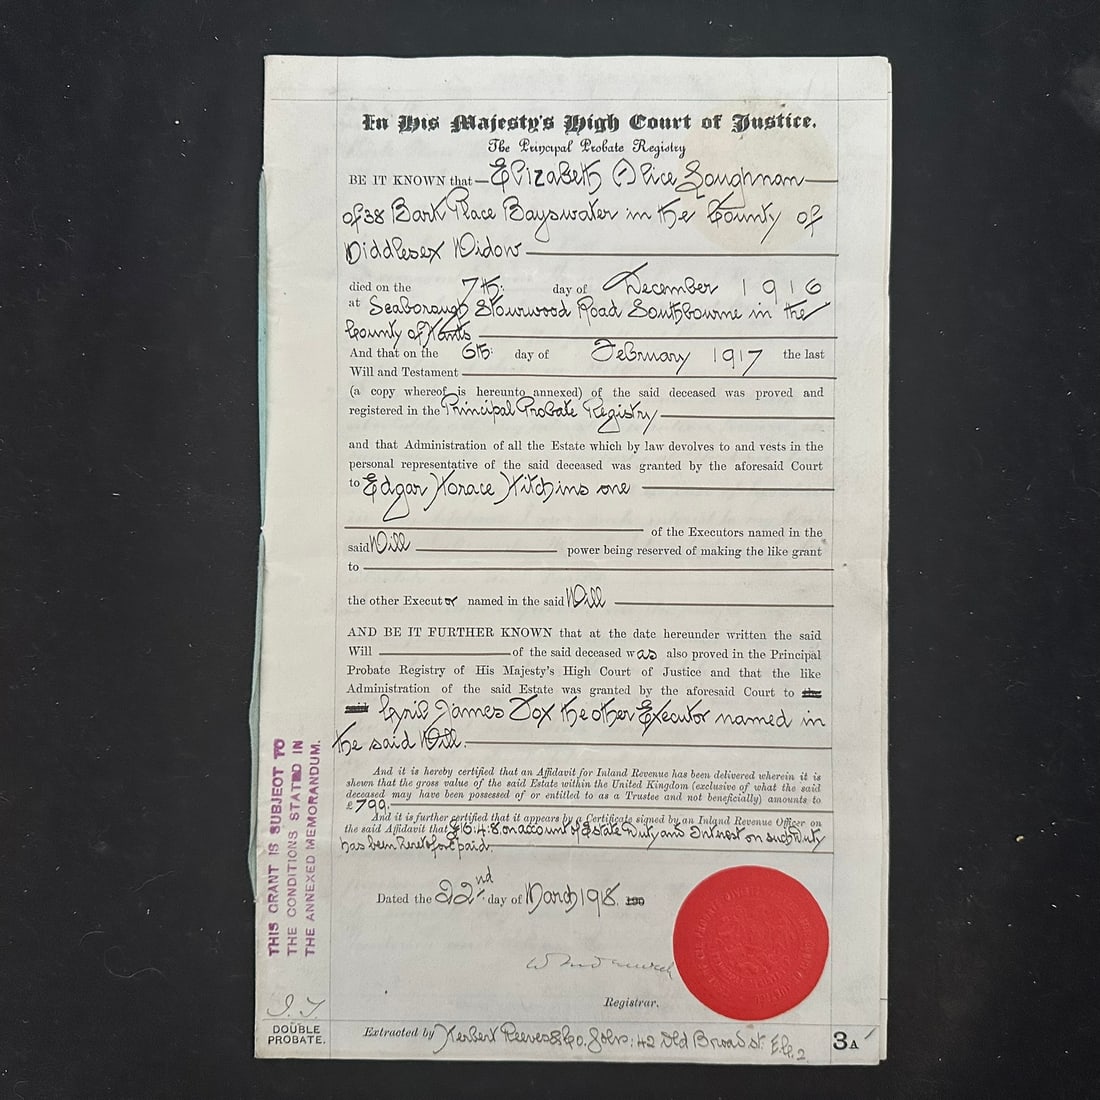 In His Majesty's High Court of Justice.
The Principal Probate Registry
BE IT KNOWN that Elizabeth Alice
of 38 Bark Place Bayswater in the County of
Middlesex Widow
died on the 7th day of December 1916
at Seaborough Stourwood Road Southbourne in the
County of Hants
And that on the 6th day of February 1917 the last
Will and Testament
(a copy whereof is hereunto annexed) of the said deceased was proved and
registered in the Principal Probate Registry
and that Administration of all the Estate which by law devolves to and vests in the
personal representative of the said deceased was granted by the aforesaid Court
to Edgar Horace Hitchins one
of the Executors named in the
said Will power being reserved of making the like grant
to
the other Executor named in the said Will
AND BE IT FURTHER KNOWN that at the date hereunder written the said
Will of the said deceased was also proved in the Principal
Probate Registry of His Majesty's High Court of Justice and that the like
Administration of the said Estate was granted by the aforesaid Court to the
said Cyril James Fox the other Executor named in
the said Will.
And it is hereby certified that an Affidavit for Inland Revenue has been delivered wherein it is
shewn that the gross value of the said Estate within the United Kingdom (exclusive of what the said
deceased may have been possessed of or entitled to as a Trustee and not beneficially) amounts to
£799.
And it is further certified that it appears by a Certificate signed by an Inland Revenue Officer on
the said Affidavit that £16.4.8 on account of Estate Duty and Interest on such Duty
has been heretofore paid.
Dated the 22nd day of March 1918. 190
Registrar.
Extracted by Herbert Reeves & Co. Solrs: 42 Old Broad St. E.C.2
3A
THIS GRANT IS SUBJECT TO
THE CONDITIONS STATED IN
THE ANNEXED MEMORANDUM.
DOUBLE
PROBATE.